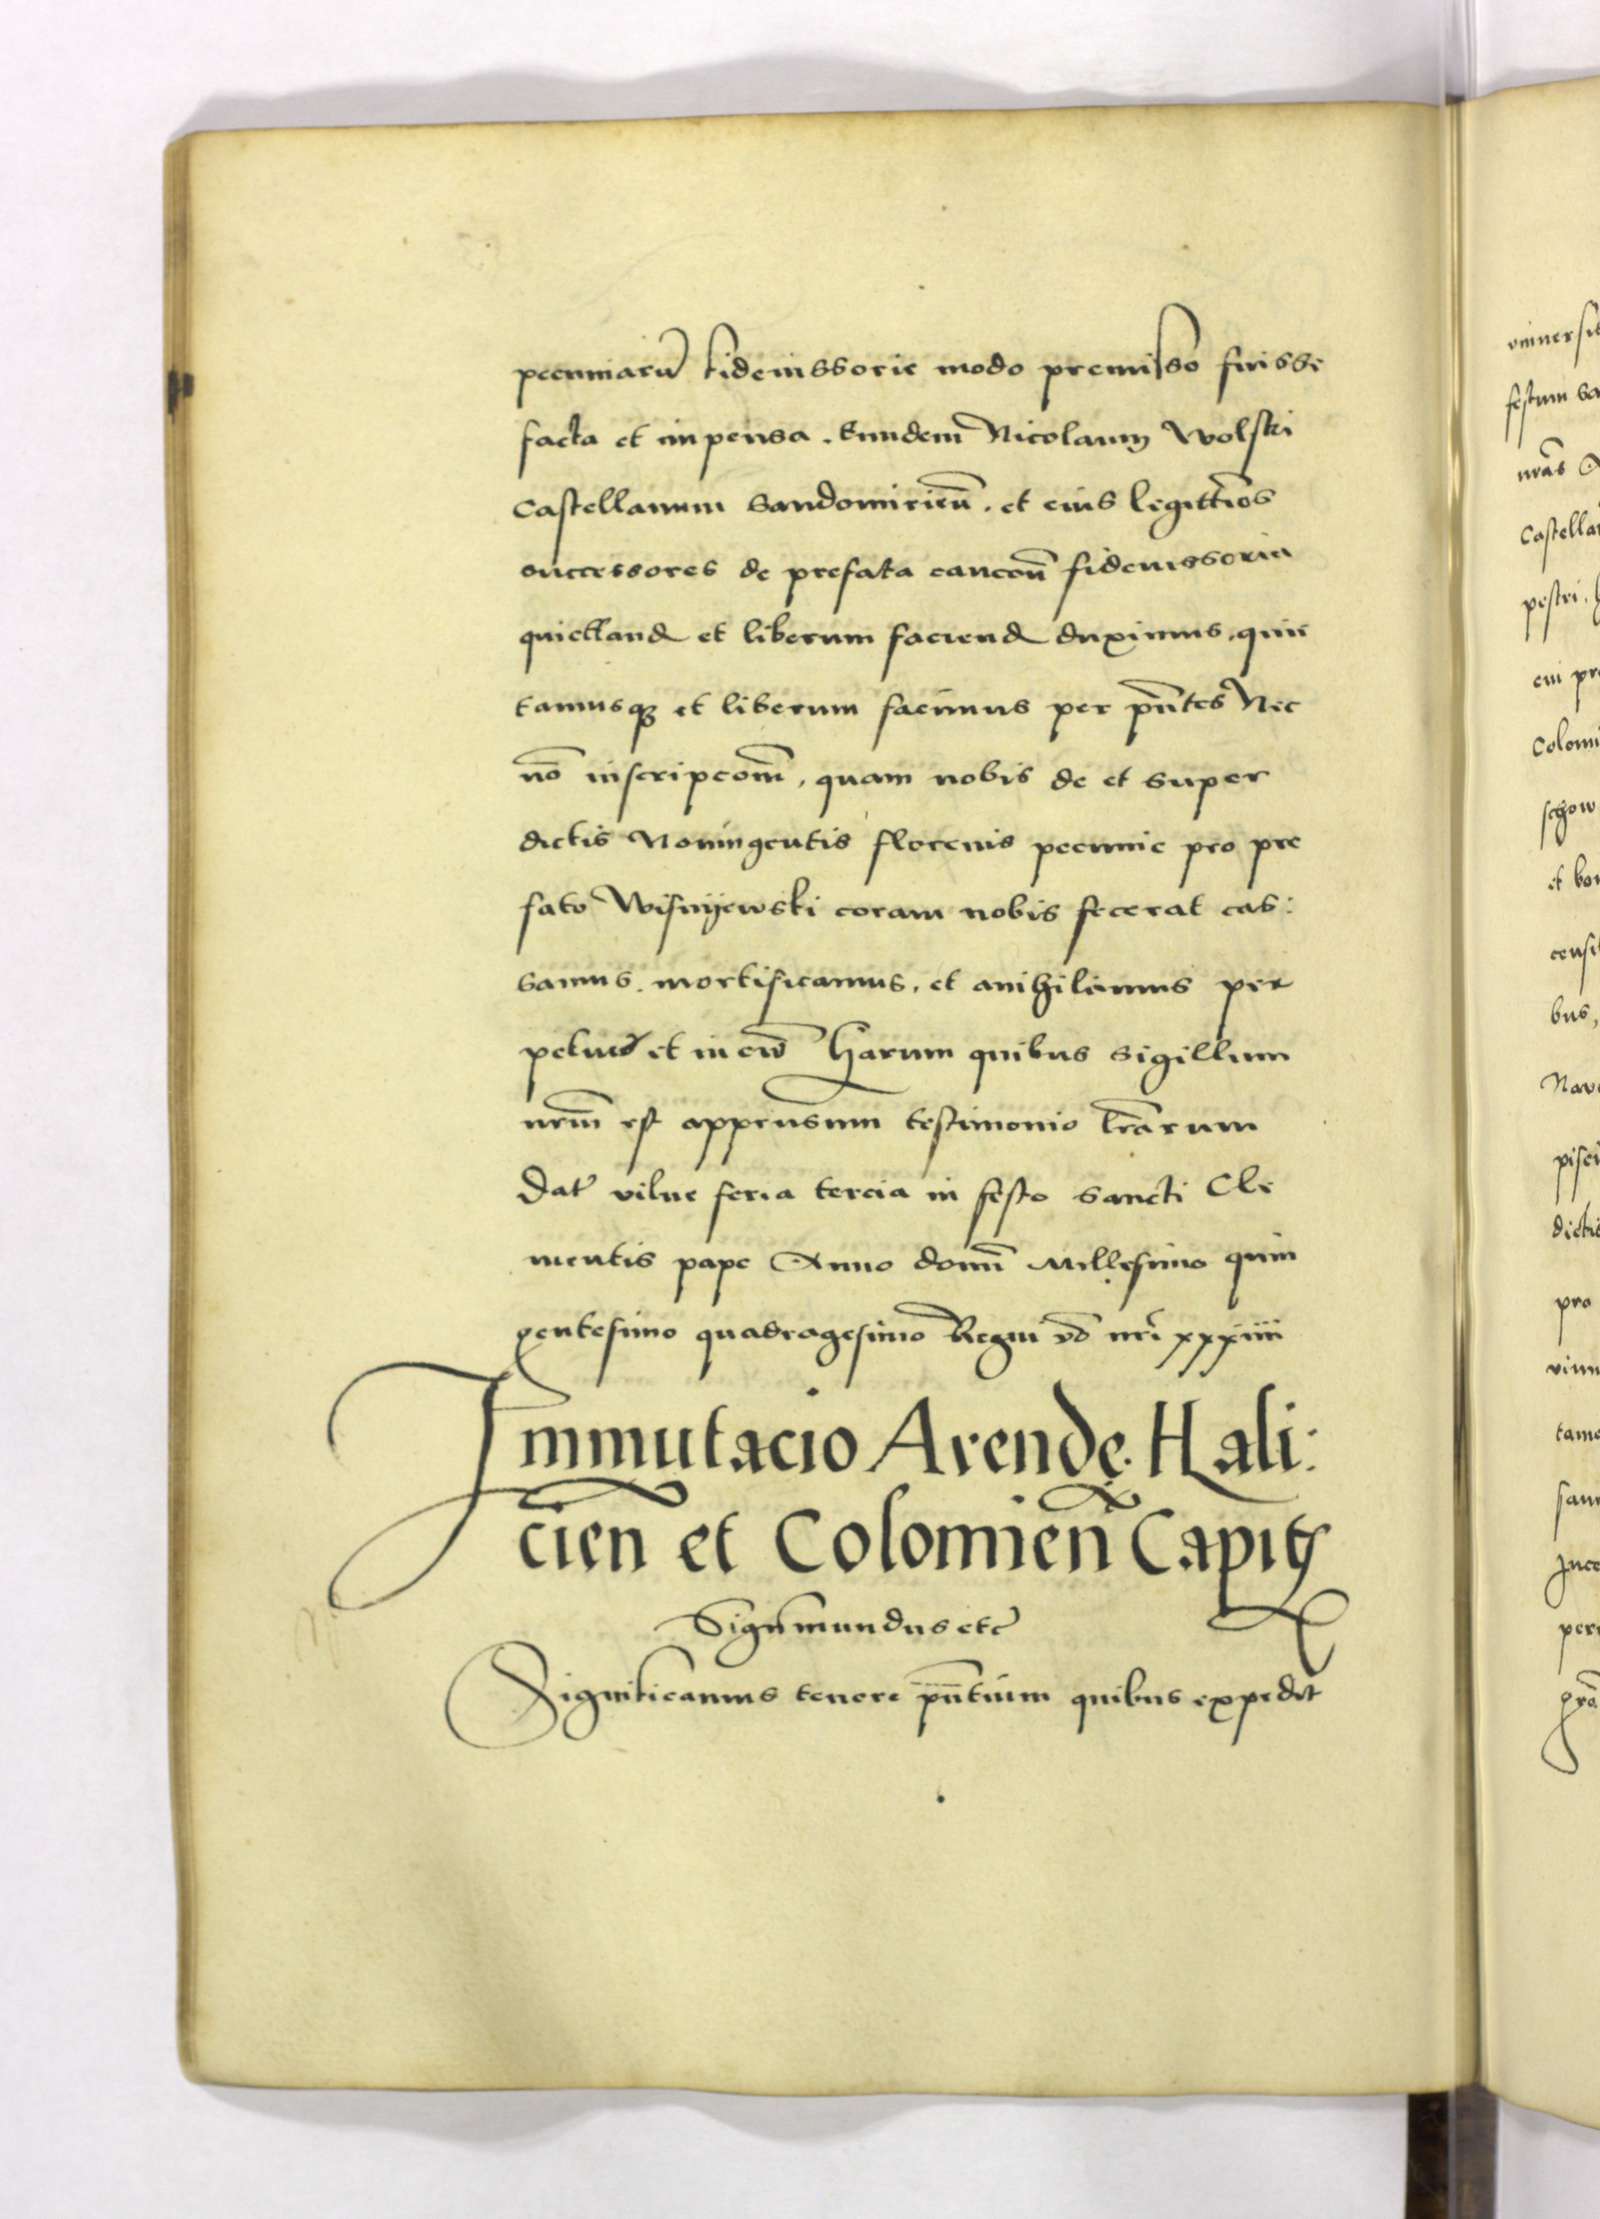 pecuniarũ fideiussorie modo premisso fuisse
facta et impensa. Eundem Nicolaum Wolski
Castellanum Sandomirieñ. et eius legittĩos
successores de prefata caucoñ fideiussoria
quiettand et liberum faciend duximus, quit
tamusqꝫ et liberum facimus per pñtes Nec
nõ inscripcoñ, quam nobis de et super
dictis Noningentis florenis pecunie pro pre
fato Wisnyewski coram nobis fecerat cas:
samus. mortificamus, et anihilamus per
petuo et in eũ Harum quibus sigillum
nrũ est appensum testimonio lr̃arum
Dat vilne feria tercia in festo Sancti Cle
mentis pape Anno domĩ Millesimo quin
gentesimo quadragesimo Regni v̄o nr̃i xxxiiii
Immutacio Arende Hali:
cień et Colomień Capit
Sigismundus etc
Significamus tenore pñtium quibus expedit
universis
festum
nrãs
Castella
pestri.
cui pr
Colomi
schow
et bo
censi
bus,
Nav
pisci
dictis
pro
tamu